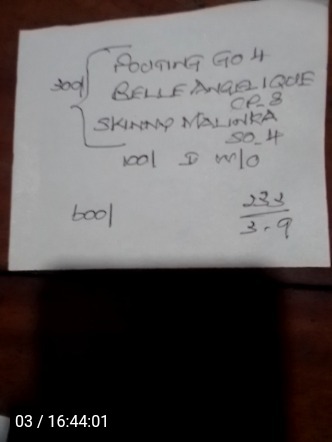 300/ POUTING GO 4
BELLE ANGELIQUE
CP-8
SKINNY MALINKA
SO-4
100/ D W/O
600/
233
3-9
03 / 16:44:01